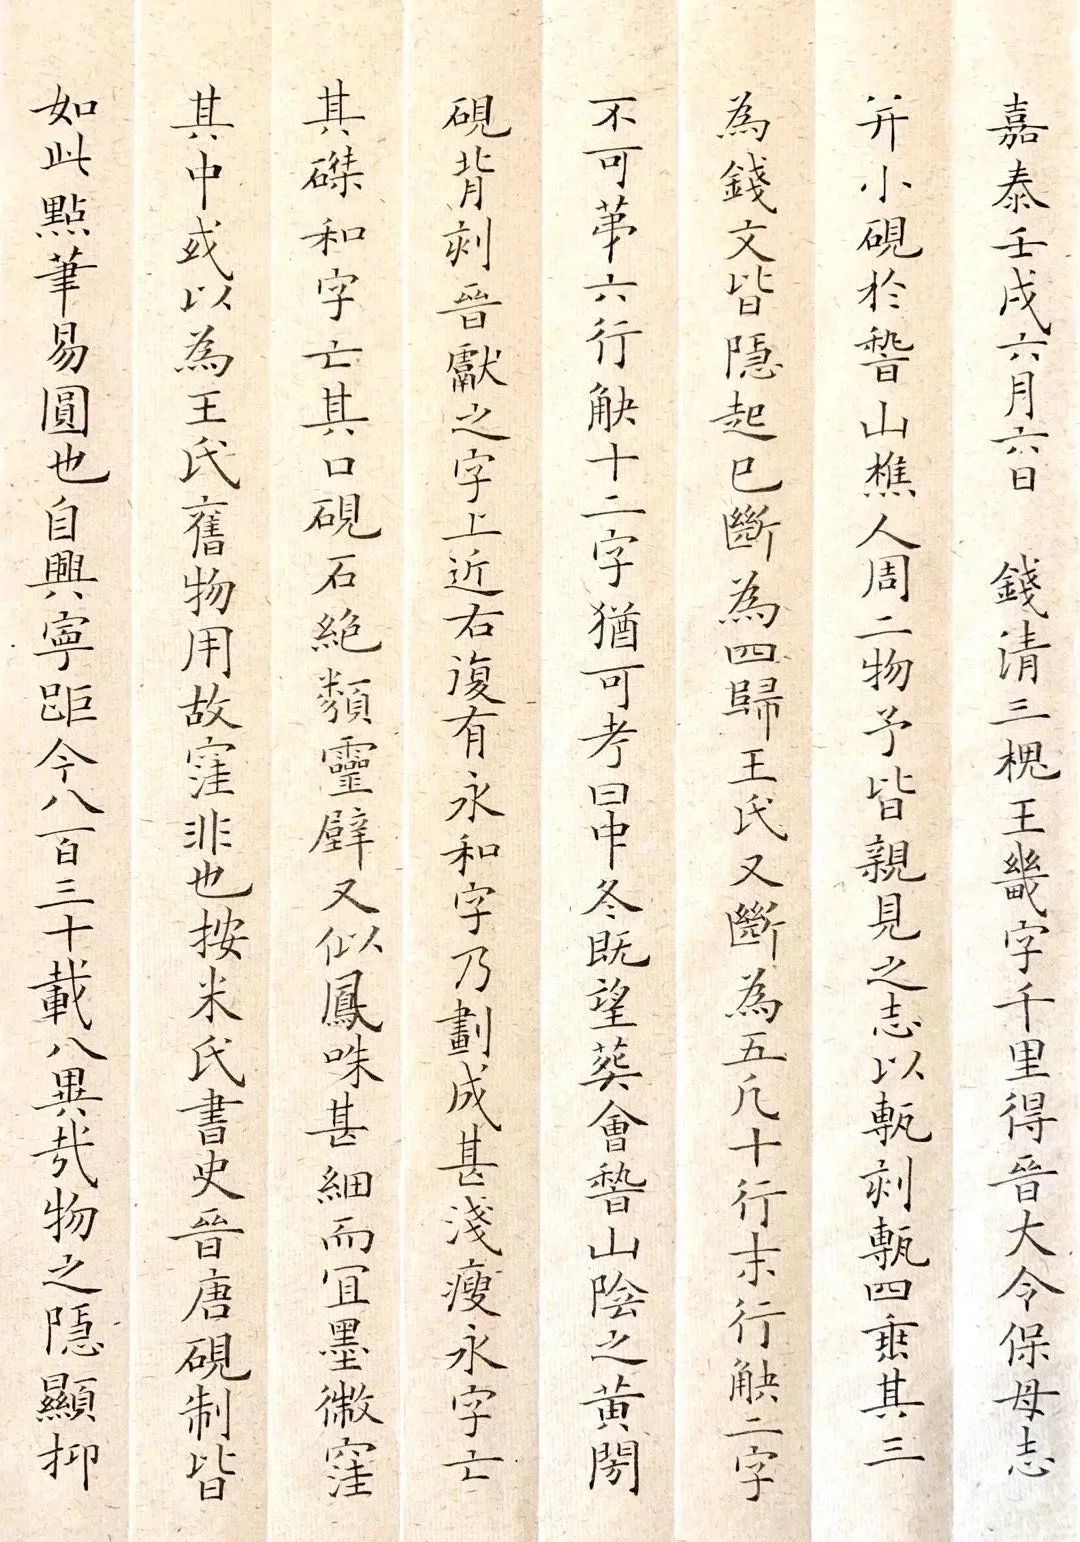 嘉泰壬戌六月六日 錢清三槐王畿字千里得晉大令保母志
并小硯於嵇山樵人周二物予皆親見之志以甎刻甎四垂其三
為錢文皆隱起已斷為四歸王氏又斷為五凡十行末行觖二字
不可苐六行觖十二字猶可考曰中冬既望葬會嵇山陰之黃閍
硯背刻晉獻之字上近右復有永和字乃劃成甚淺瘦永字亡
其磔和字亡其口硯石絕類靈壁又似鳳咮甚細而宜墨微窪
其中或以為王氏舊物用故窪非也按米氏書史晉唐硯制皆
如此點筆易圓也自興寧距今八百三十載八異哉物之隱顯抑